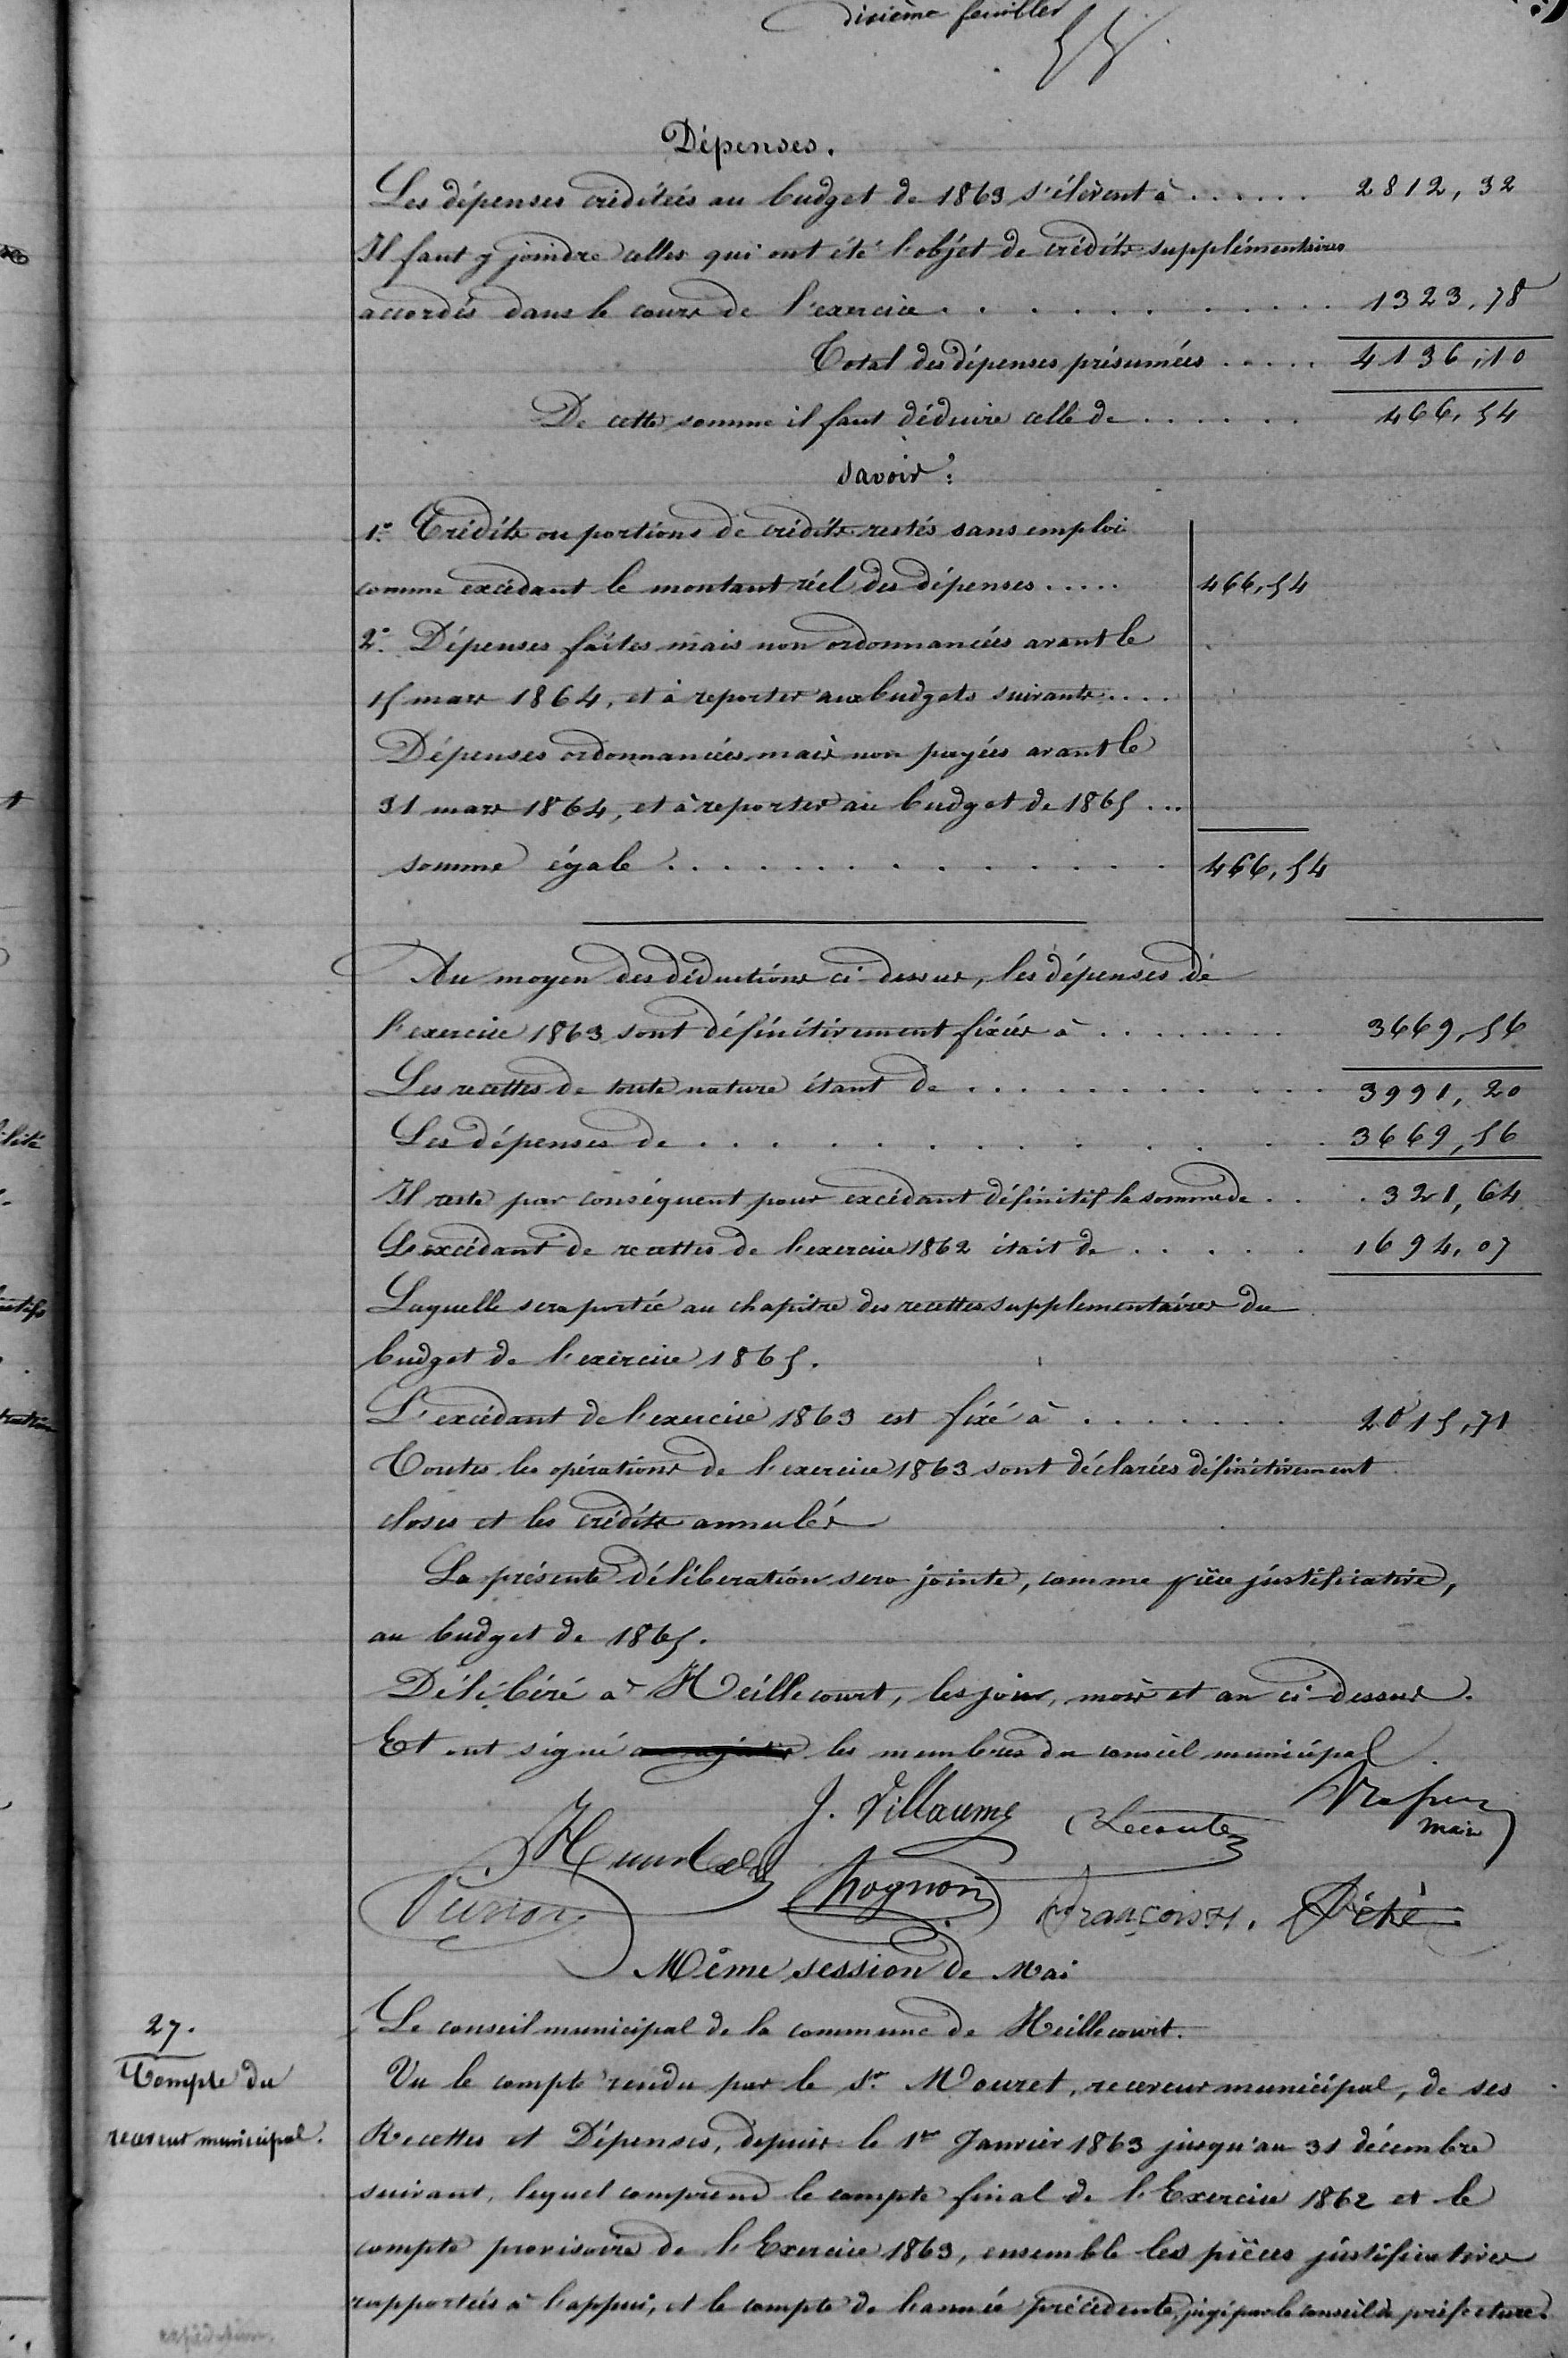 dixième feuillet
Dépenses.
Les dépenses créditées au budget de 1863 s'élèvent à ...... 2812,32
Il faut y joindre celles qui ont été l'objet de crédits supplémentaires
accordés dans le cours de l'exercice ......... 1323,78
Total des dépenses présumées ..... 4136,10
De cette somme il faut déduire celle de ...... 466,54
Savoir :
1° Crédits ou portions de crédits restés sans emploi
comme excédant le montant réel des dépenses ..... 466,54
2° Dépenses faites mais non ordonnancées avant le
15 mars 1864, et à reporter aux budgets suivants ....
Dépenses ordonnancées mais non payées avant le
31 mars 1864, et à reporter au budget de 1865 ...
somme égale .............. 466,54
Au moyen des déductions ci-dessus, les dépenses de
l'exercice 1863 sont définitivement fixées à ....... 3669,56
Les recettes de toute nature étant de ........... 3991,20
Les dépenses de ............ 3669,56
Il reste par conséquent pour excédant définitif la somme de ... 321,64
L'excédant de recettes de l'exercice 1862 était de ..... 1694,07
Laquelle sera portée au chapitre des recettes supplementaires du
budget de l'exercice 1865.
L'excédant de l'exercice 1863 est fixé à ....... 2015,71
Toutes les opérations de l'exercice 1863 sont déclarées définitivement
closes et les crédits annulés
La présente délibération sera jointe, comme pièce justificative,
au budget de 1865.
Délibéré à Heillecourt, les jour, mois et an ci-dessus.
Et ont signé les membres du conseil municipal
J. Villaume Lecomte
maire
Hognon François H.
Même session de Mai
27.
Compte du
receveur municipal.
Le conseil municipal de la commune de Heillecourt.
Vu le compte rendu par le Sr. Mouret, receveur municipal, de ses
Recettes et Dépenses, depuis le 1er Janvier 1863 jusqu'au 31 décembre
suivant, lequel comprend le compte final de l'Exercice 1862 et le
compte provisoire de l'Exercice 1863, ensemble les pièces justificatives
rapportées à l'appui, et le compte de l'année précédente, jugé par le conseil de préfecture.